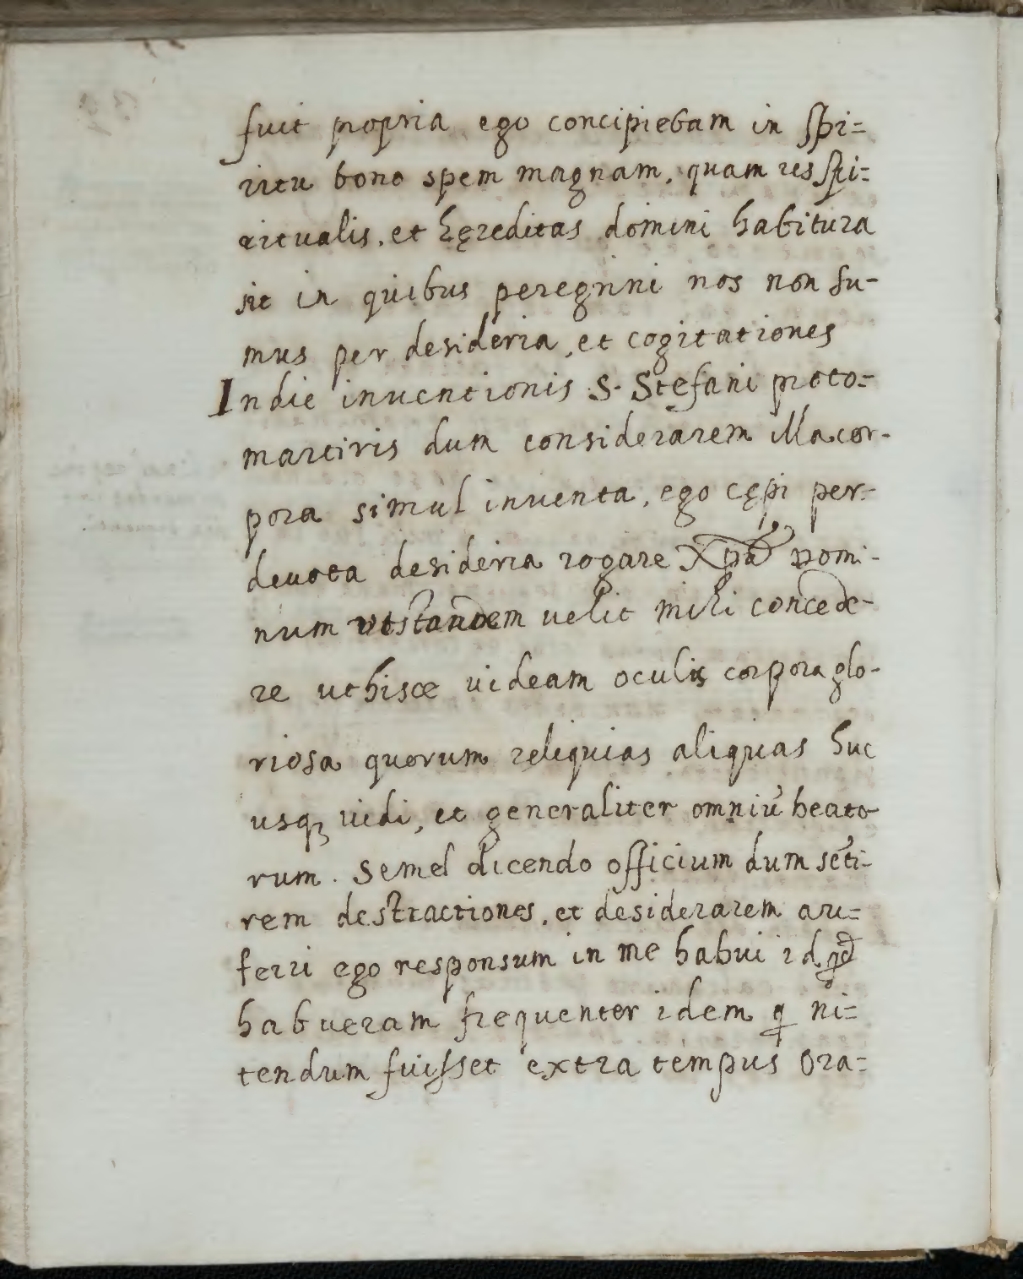 fuit propria ego concipiebam in spi=
ritu bono spem magnam, quam res spi=
ritualis, et hęreditas domini habitura
sit in quibus peregrini nos non su-
mus per desideria, et cogitationes
In die inuentionis S. Stefani proto=
martiris dum considerarem illa cor-
pora simul inuenta, ego cępi per-
deuota desideria rogare Xpm̃ Domi-
num ut tandem uelit mihi concede-
re ut hisce uideam oculis corpora glo-
riosa quorum reliquias aliquas huc
usqꝫ uidi, et generaliter omniũ beato
rum. Semel dicendo officium dum sẽti-
rem destractiones, et desiderarem au=
ferri ego responsum in me habui id qd̃
habueram frequenter idem q̃ ni=
tendum fuisset extra tempus ora=